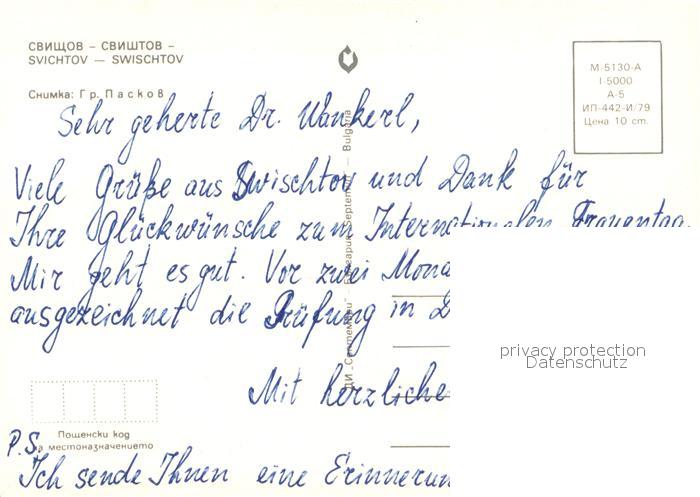 СВИЩОВ – СВИШТОВ –
SVICHTOV — SWISCHTOV
Снимка: Гр. Пасков
М-5130-А
I-5000
А-5
ИП-442-И/79
Цена 10 ст.
Sehr geherte Dr. Wankerl,
Viele Grüße aus Swischtov und Dank für
Ihre Glückwünsche zum Internationalen Frauentag.
Mir geht es gut. Vor zwei Mona
ausgezeichnet die Prüfung in D
Mit herzliche
P.S.
Ich sende Ihnen eine Erinnerun
Пощенски код
на местоназначението
ДИ „Септември" — Bulgaria
privacy protection
Datenschutz